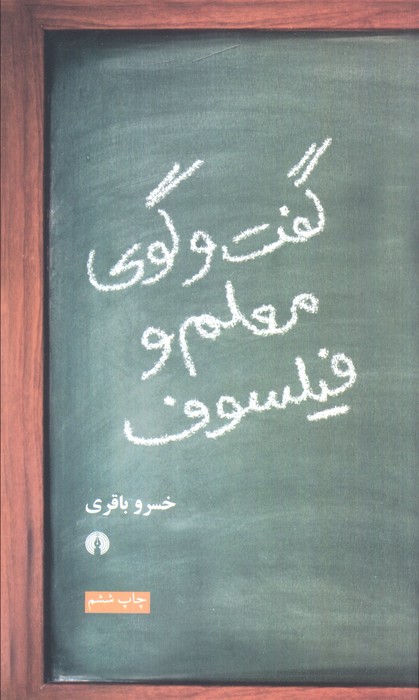 گفت و گوی
معلم و
فیلسوف
خسرو باقری
چاپ ششم